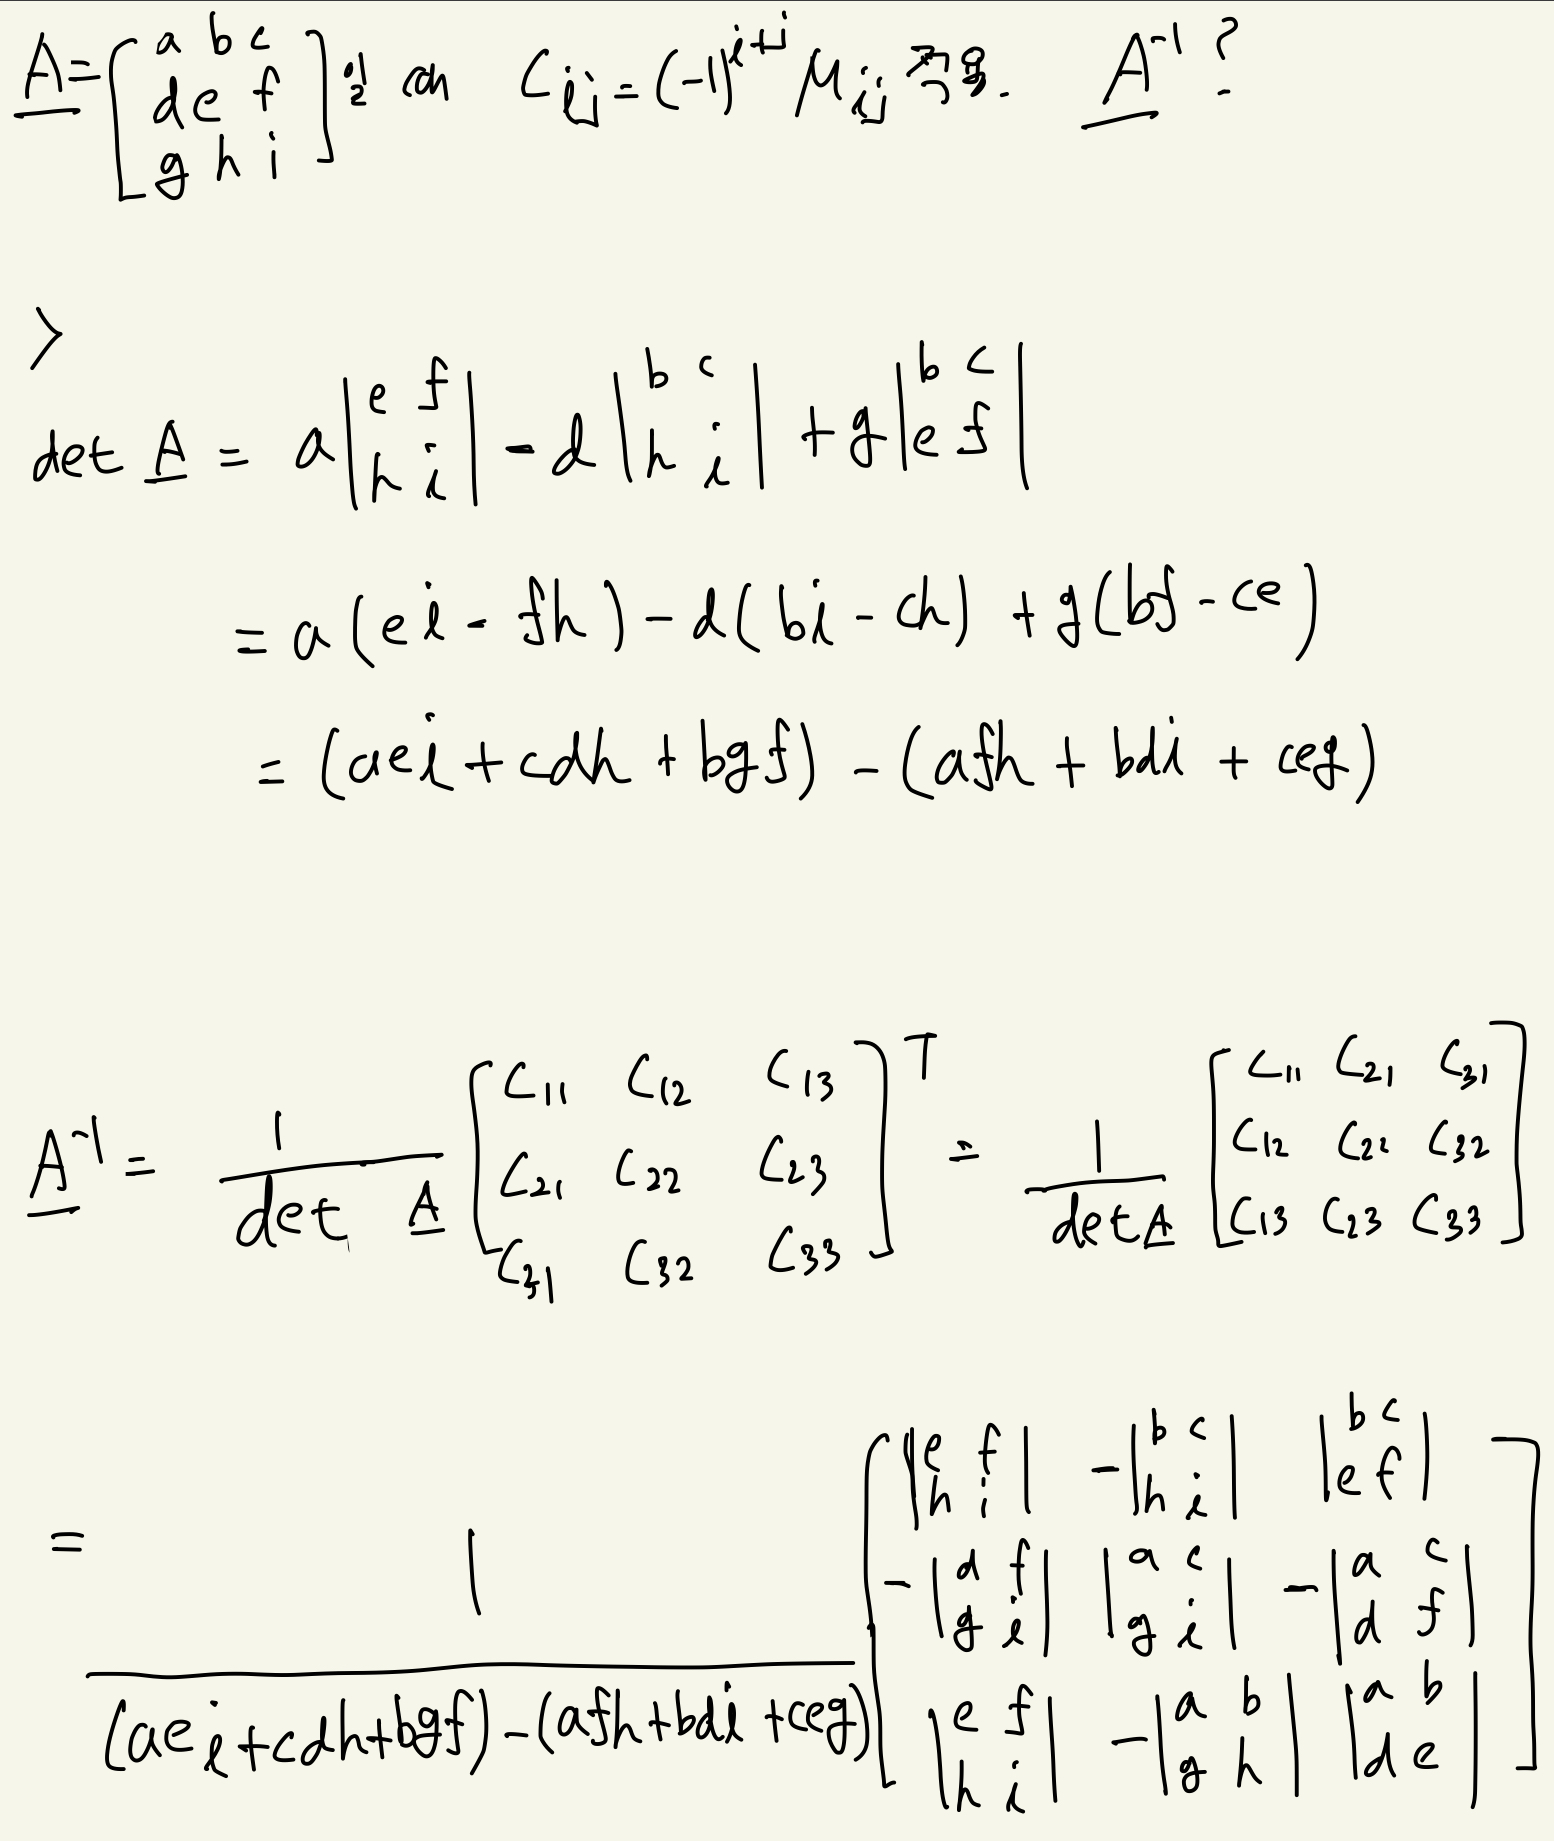 A = [a b c; d e f; g h i] 일 때 C_ij = (-1)^{i+j} M_ij 적용. A^{-1} ?
>
det A = a |e f; h i| - d |b c; h i| + g |b c; e f|
= a(ei - fh) - d(bi - ch) + g(bf - ce)
= (aei + cdh + bgf) - (afh + bdi + ceg)
A^{-1} = 1/(det A) [C11 C12 C13; C21 C22 C23; C31 C32 C33]^T = 1/(det A) [C11 C21 C31; C12 C22 C32; C13 C23 C33]
= 1/((aei+cdh+bgf)-(afh+bdi+ceg)) [|e f; h i| -|b c; h i| |b c; e f|; -|d f; g i| |a c; g i| -|a c; d f|; |e f; h i| -|a b; g h| |a b; d e|]